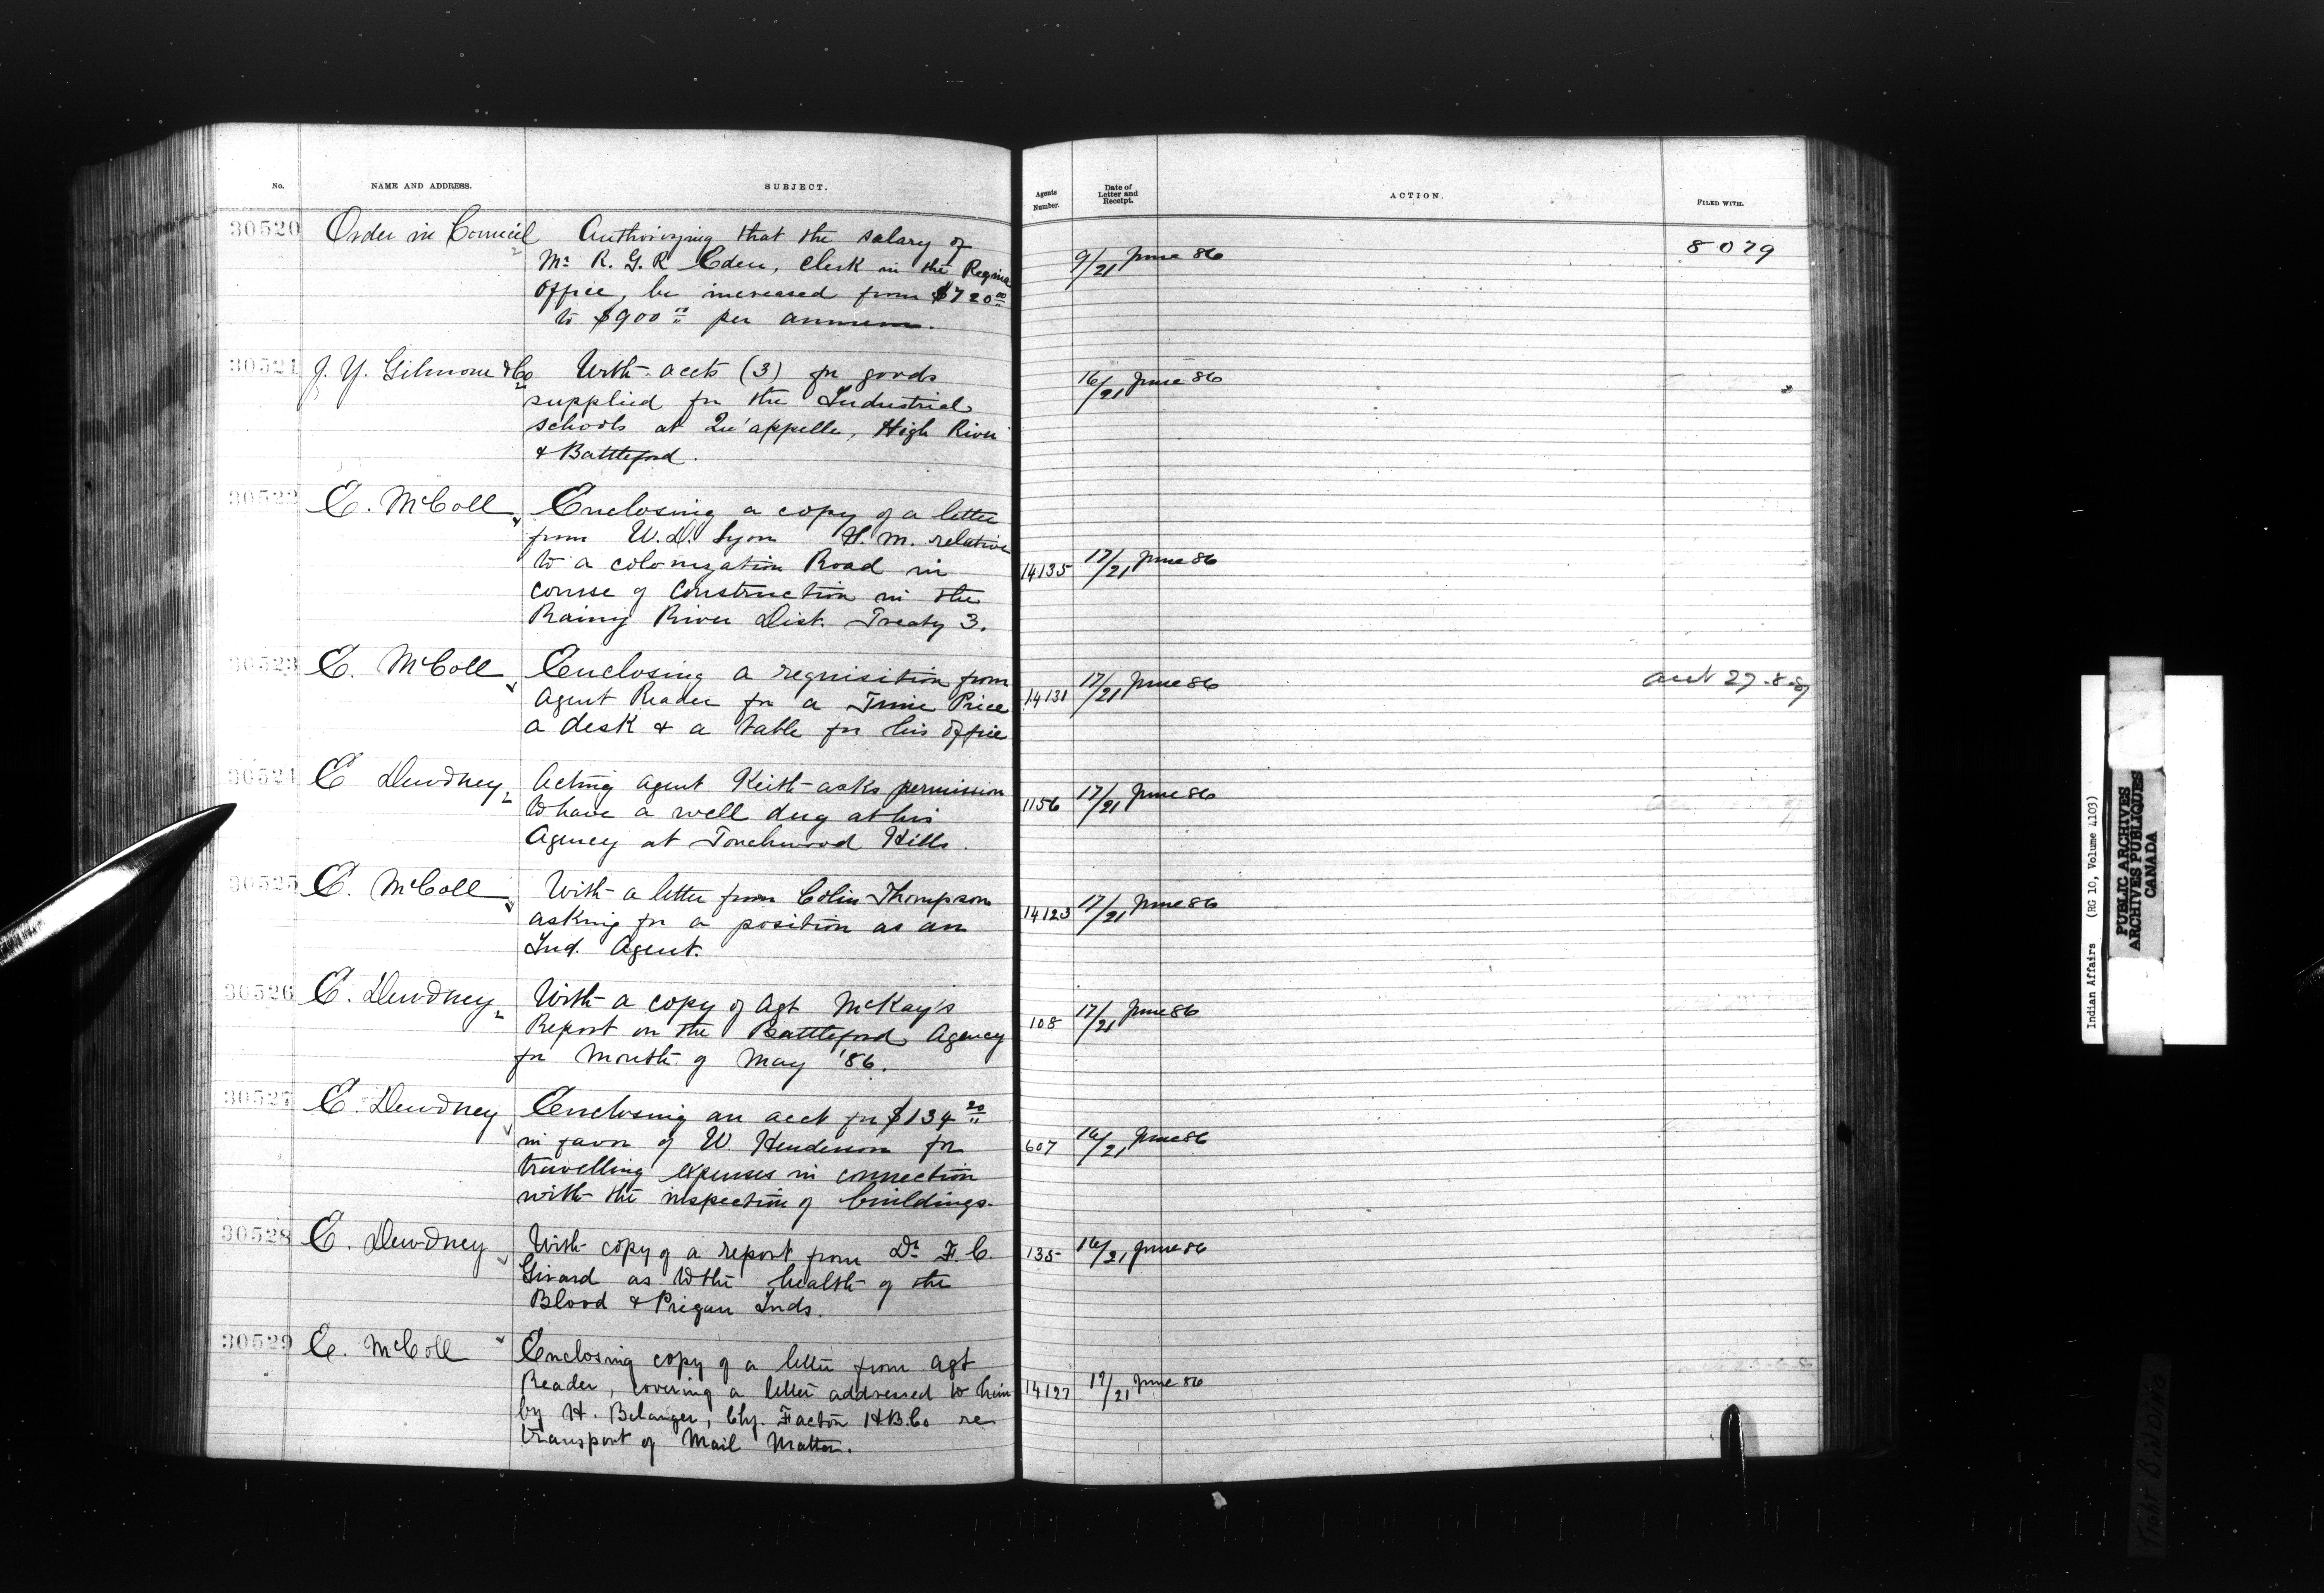 No.
NAME AND ADDRESS.
SUBJECT.
Agents
Number.
Date of
Letter and
Receipt.
ACTION.
FILED WITH.
30520
Order in Council
Authorizing that the salary of
Mr. R. G. R Eden, Clerk in the Regina
Office, be increased from $720 00
to $900 00 per annum.
9/21 June 86
8079
30521
J. Y. Gilmour & Co
With accts (3) for goods
supplied for the Industrial
schools at Qu'appelle, High River
& Battleford.
16/21 June 86
30522
E. McColl
Enclosing a copy of a letter
from W. D. Lyon S. M. relative
to a colonization Road in
course of construction in the
Rainy River Dist. Treaty 3.
14135
17/21 June 86
30523
E. McColl
Enclosing a requisition from
Agent Reader for a Time Piece
a desk & a table for his office
14131
17/21 June 86
27-8-
30524
E Dewdney
Acting Agent Keith asks permission
to have a well dug at his
Agency at Touchwood Hills.
1156
17/21 June 86
30525
E. McColl
With a letter from Colin Thompson
asking for a position as an
Ind. Agent.
14123
17/21 June 86
30526
E. Dewdney
With a copy of Agt McKay's
Report on the Battleford Agency
for Month of May '86.
108
17/21 June 86
30527
E. Dewdney
Enclosing an acct for $134 20
in favor of W. Henderson for
travelling expenses in connection
with the inspection of buildings.
607
16/21 June 86
30528
E. Dewdney
With copy of a report from Dr. F. C.
Girard as to the health of the
Blood & Piegan Inds.
135
16/21 June 86
30529
E. McColl
Enclosing copy of a letter from Agt
Reader, covering a letter addressed to him
by H. Belanger, Chf. Factor H.B.Co re
transport of Mail Matter.
14127
17/21 June 86
Indian Affairs (RG 10, Volume 4103)
PUBLIC ARCHIVES
ARCHIVES PUBLIQUES
CANADA
Tight Binding